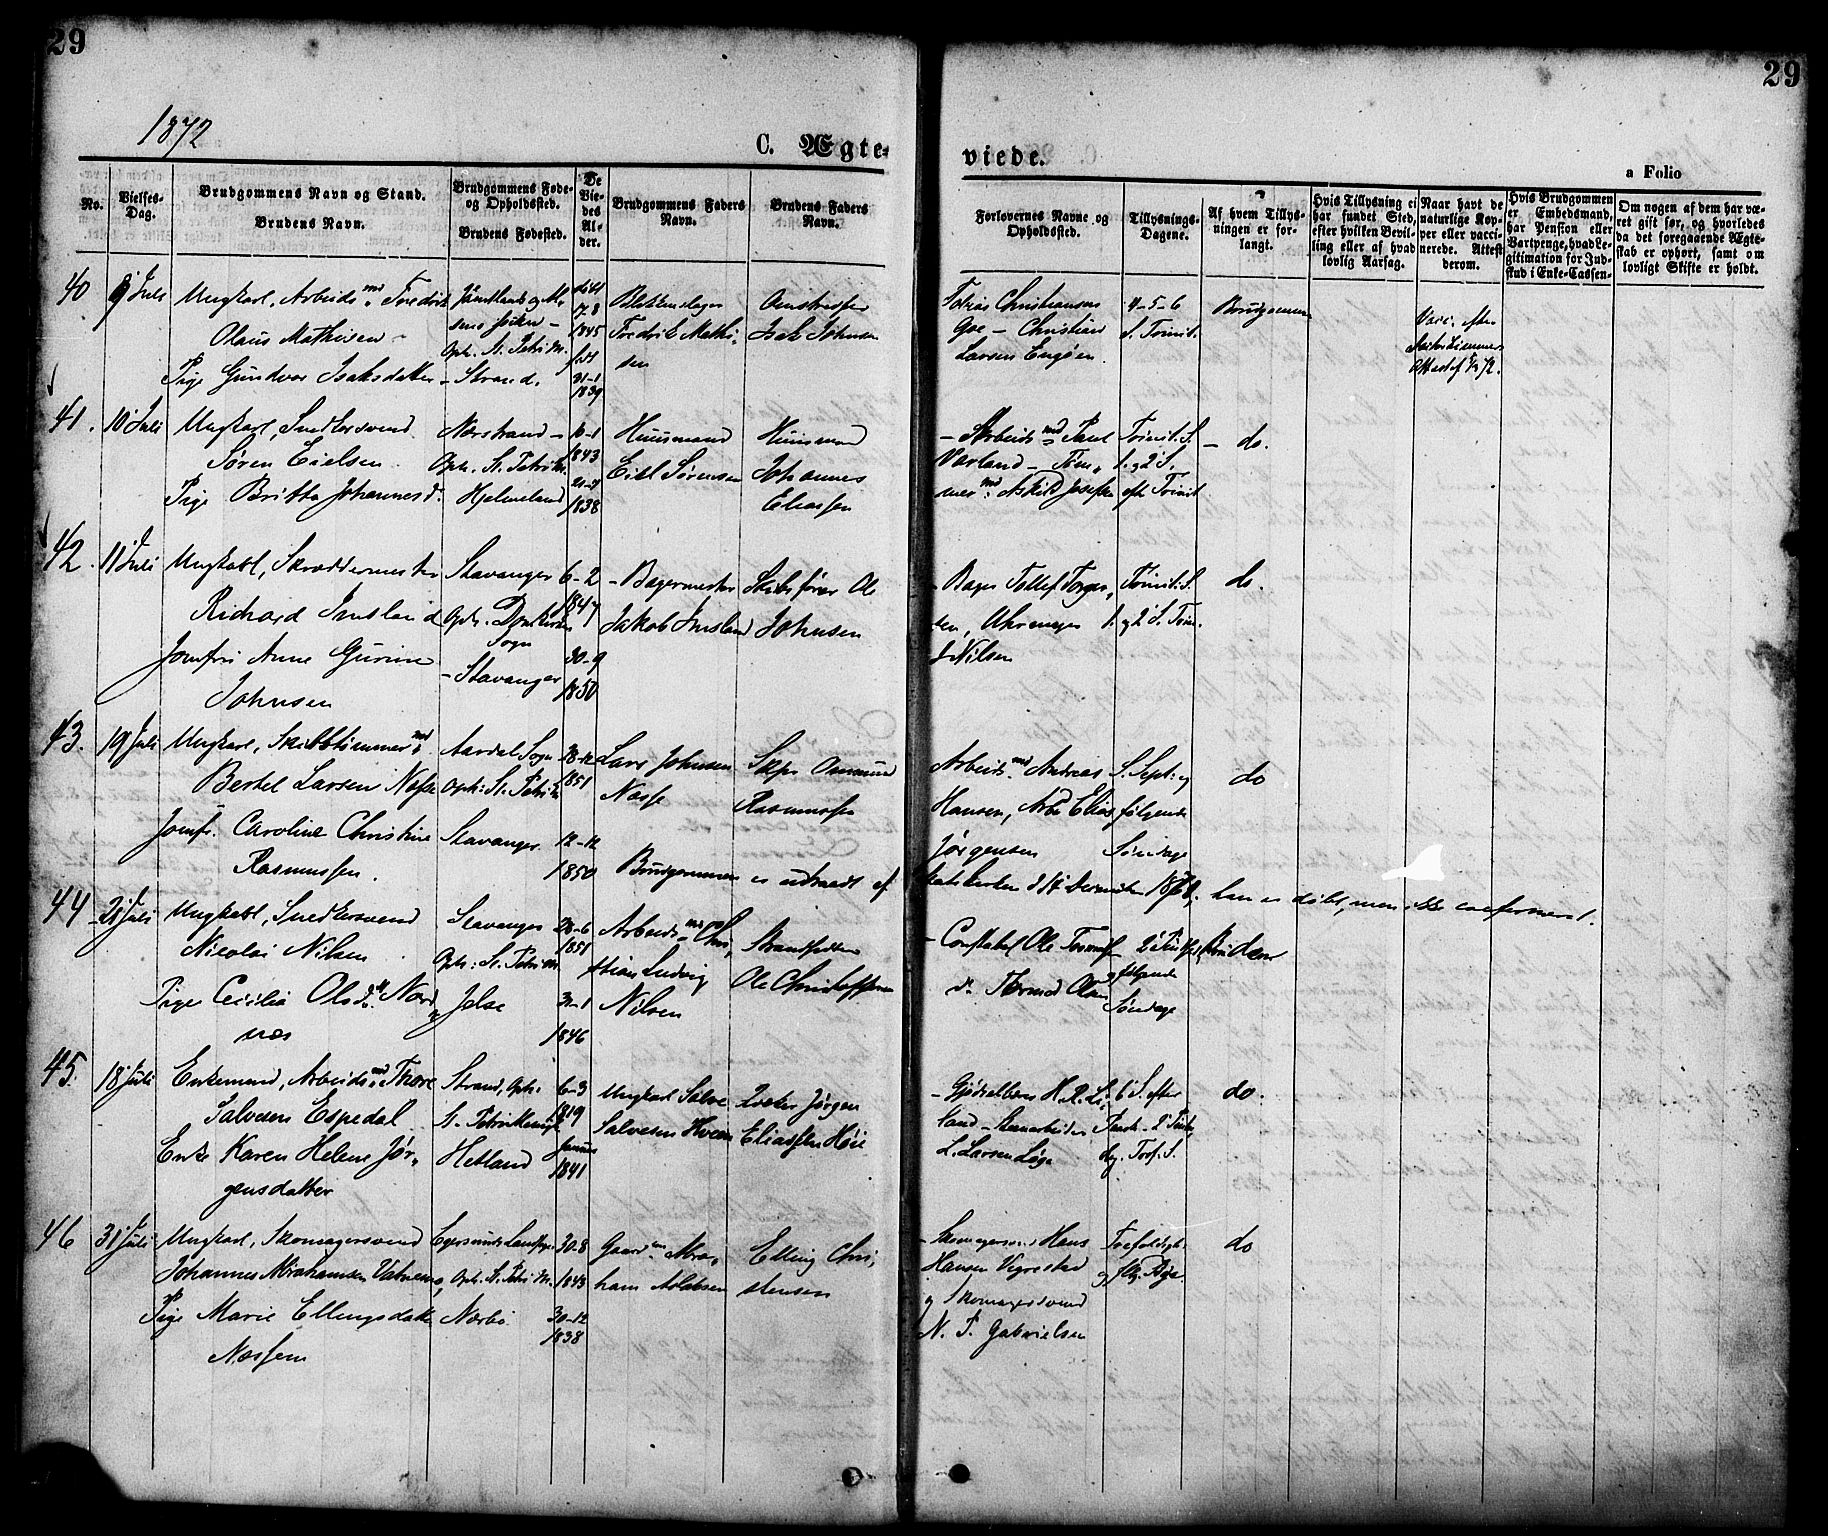 29
29
1872
C. Ægte-
viede.
a Folio
No.
Vielses-Dag.
Brudgommens Navn og Stand.
Brudens Navn.
Brudgommens Føde- og Opholdssted.
Brudens Fødested.
De Viedes Alder.
Brudgommens Faders Navn.
Brudens Faders Navn.
Forlovernes Navne og Opholdssted.
Tillysnings-Dagene.
Af hvem Tillysningen er forlangt.
Hvis Tillysning ei har fundet Sted, efter hvilken Bevilling eller af hvad lovlig Aarsag.
Naar havt de naturlige Kopper eller vaccinerede. Attest derom.
Hvis Brudgommen er Embedsmand, har Pension eller Vartpenge, hvad Legitimation for Indskud i Enke-Cassen.
Om nogen af dem har været gift før, og hvorledes da det foregaaende Ægteskab er ophørt, samt om lovligt Skifte er holdt.
40 9 Juli
Ungkarl, Arbeidsmd Fredrik
Olaus Mathisen
Pige Gundvor Isaksdatter
Oph. St. Petri M.
Strand.
1845
31-1
1839
Fredrik Mathi,
sen
Isak Johnsen
Tobias Christiansen
Goe - Christian
Larsen Engøen.
4-5-6
S. Trinit.
Brudgommen
Vacc. efter
41. 10 Juli
Ungkarl, Snedkersvend
Søren Eielsen
Pige Britta Johannesd.
Nærstrand -
Oph. St. Petri M.
Hjelmeland
1843
1838
Huusmand
Eiel Sørensen
Huusmand
Johannes
Eliassen
- Arbeidsmd Paul
Varland - Tøm,
mermd Askild Josefsen
Trinit. S.
1. og 2 S.
eft. Trinit
- do.
42. 11 Juli
Ungkarl, Skræddermester
Richard Imsland
Jomfru Anne Gurine
Johnsen
Stavanger
Oph. Domkirkens
Sogn
- Stavanger
6-2
1847
30-9
1850
- Bagermester
Jakob Imsland
Skibsfører Ole
Johnsen
- Bager Tollef Torger,
sen, Uhrmager
J Nilsen
Trinit. S.
1. og 2 S. Trin.
do.
43. 19 Juli
Ungkarl, Skibstømmermd
Bertel Larsen Næsse
Jomfr. Caroline Christine
Rasmussen.
Aardal Sogn
Oph: St. Petri M.
Stavanger
28-12
1851
12-12
1850
Lars Johnsen
Næsse
Rasmussen
Arbeidsmd Andreas
Hansen, Arbd Elias
Jørgensen
S. Sept: og
følgende
Søndage
do
Brudgommen er udtraadt af
Statskirken d 17 December 1871, han er døbt, men ikke confirmeret.
44 - Juli
Ungkarl, Snedkersvend
Nicolai Nilsen
Pige Cecilia Olsdtr. Nord
næs
Stavanger
Oph: St. Petri M.
Jelse
28-6
1851
31-1
1846
Arbeidsmd Chri,
stian Ludvig
Nilsen
Strandsidder
Ole Christoffersen
- Constabel Ole
Tormod Olsen
og følgende
Søndage
Bruden
45. 18 Juli
Enkemand, Arbeidsmd Thore
Salvesen Espedal
Enke Karen Helene Jør,
gensdatter
Strand, Oph.
St. Petri Menigh
Hetland
6-3
1819
Januar
1841
Ungkarl Salve
Salvesen
Jørgen
Eliassen Høie
H. R. Li,
land - Stenarbeider
L. Larsen Løge
6 S. efter
do.
46 31 Juli
Ungkarl, Skomagersvend
Johannes Abrahamsen Vatnemo,
Pige Marie Ellingsdatter
Næssem
Egersunds Landsogn
Oph. St. Petri M.
Nærbø
30-8
1843
30-12
1838
Gaardm. Abra,
ham Aslaksen
Elling Chri,
stensen
- Skomagersvend Hans
Hansen Vigrestad
og Skomagersvend
N. T. Gabrielsen
do